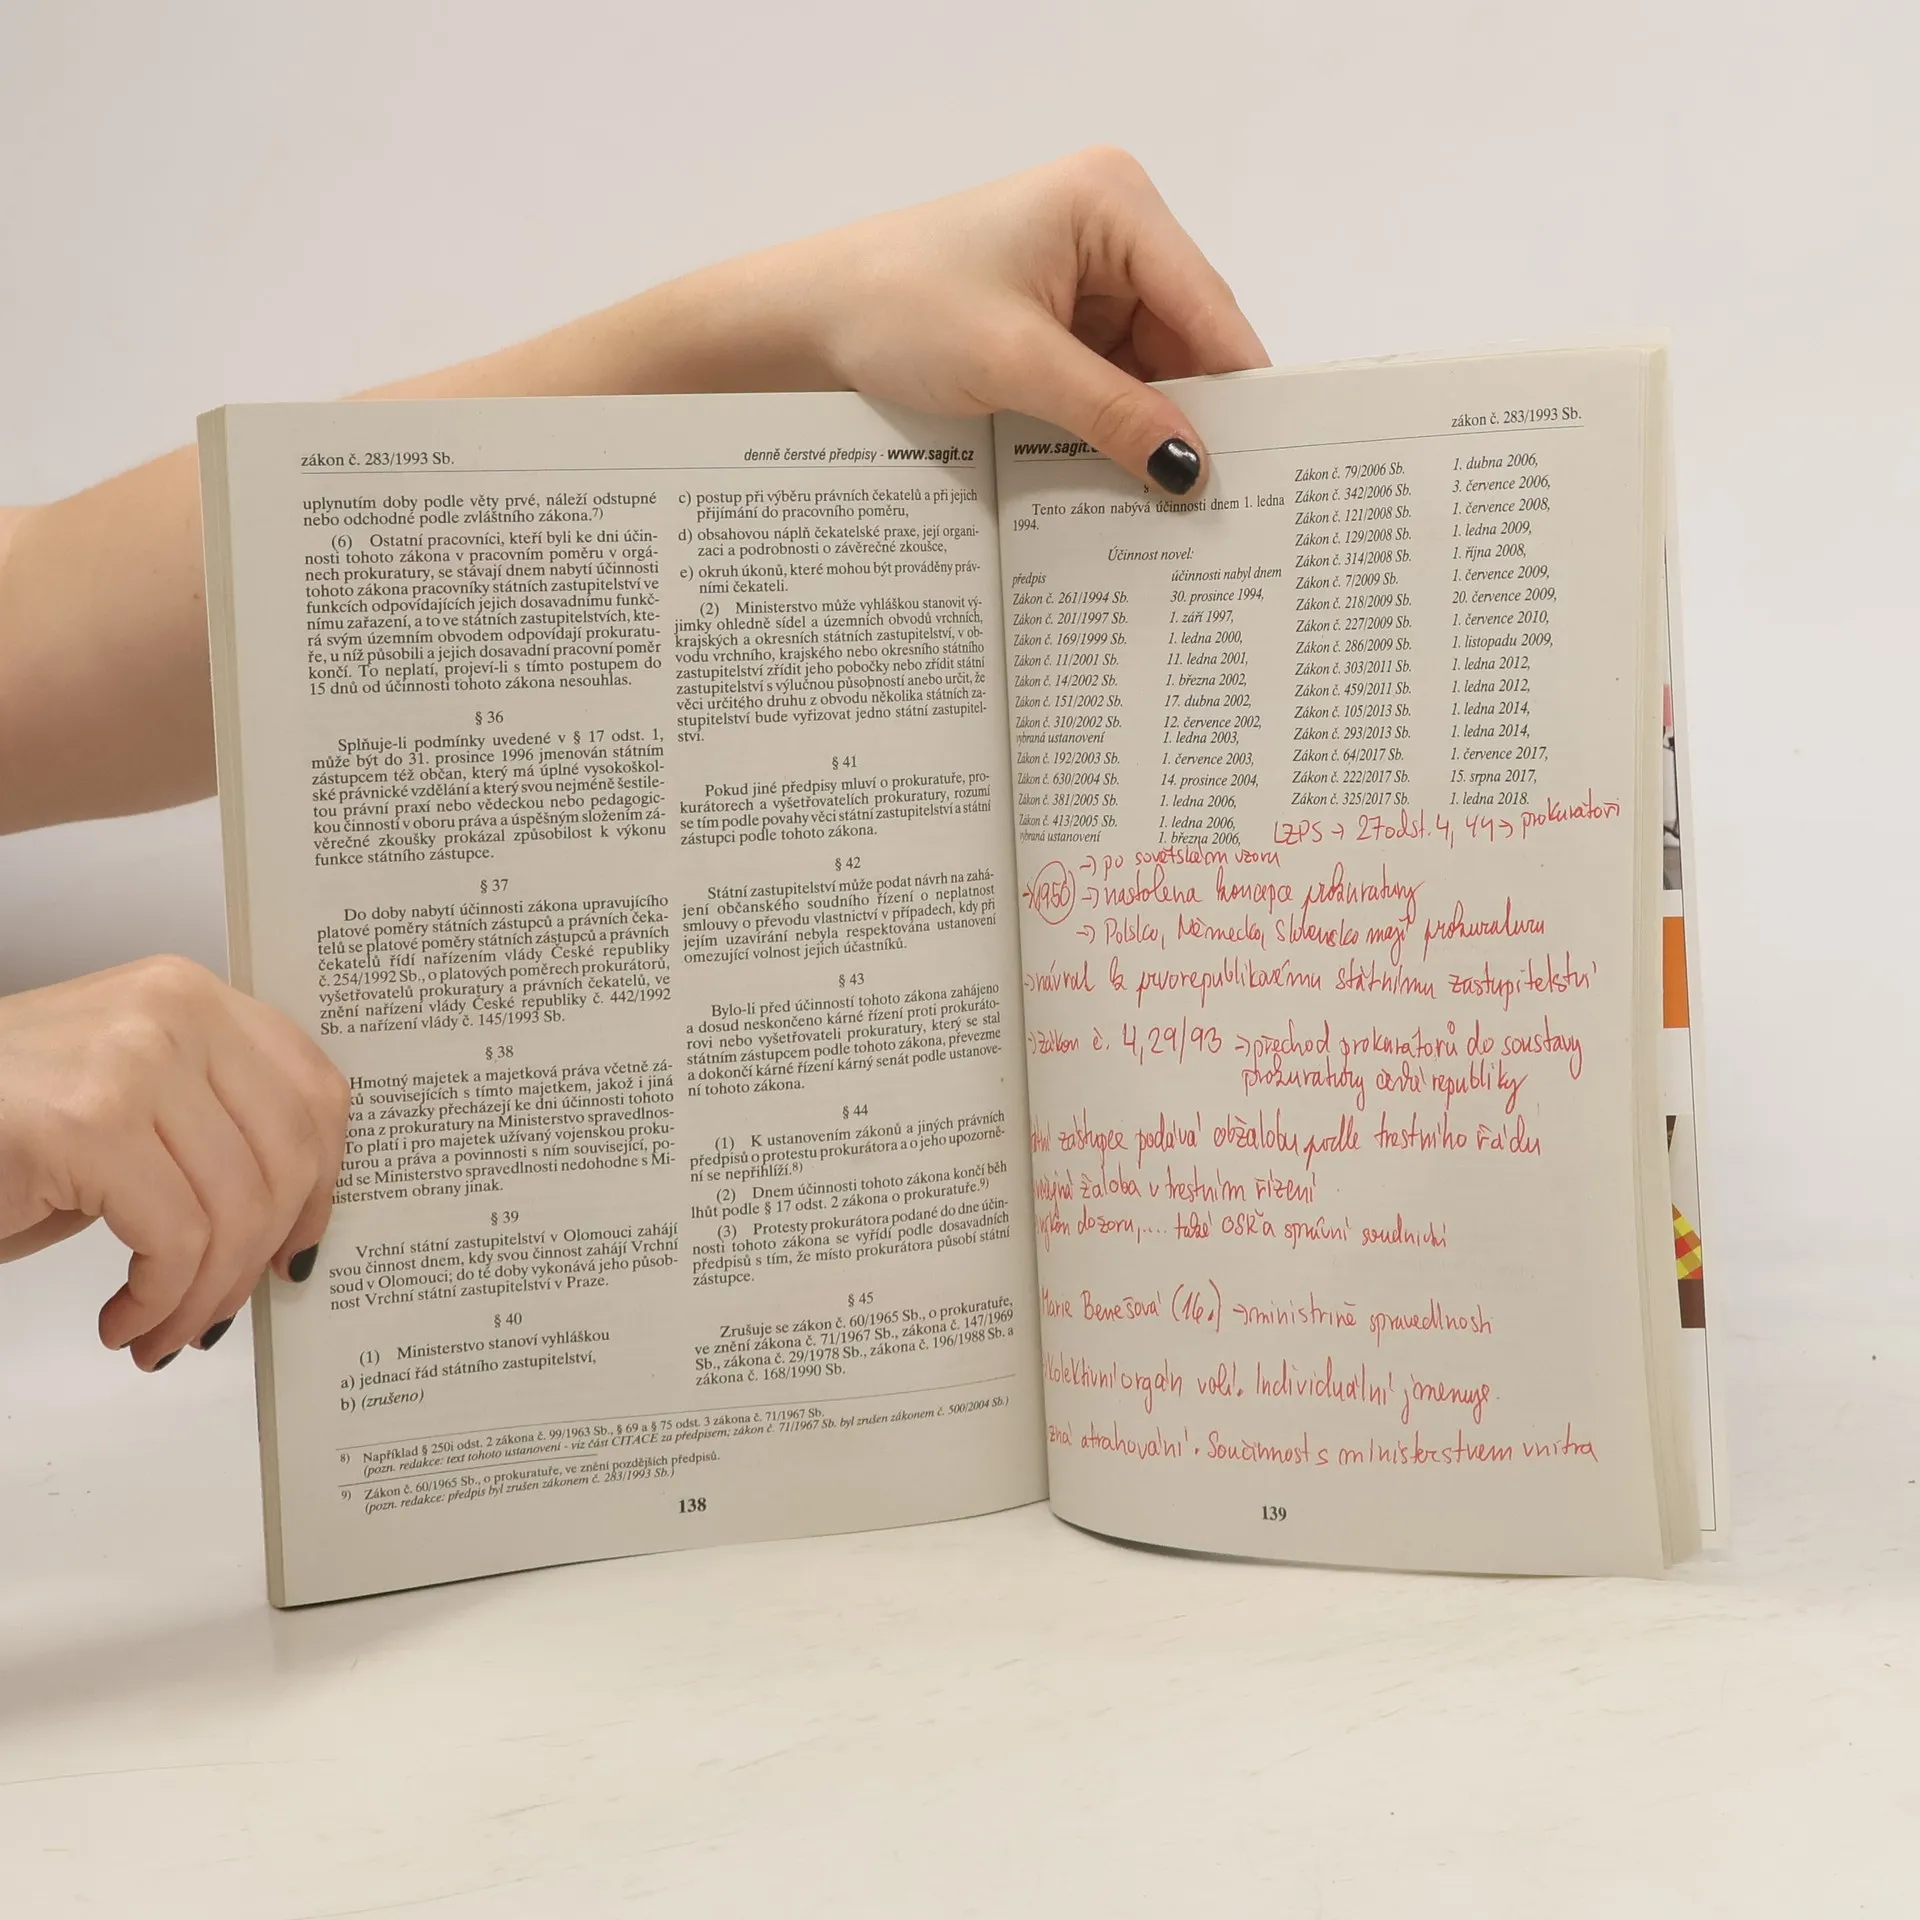 zákon č. 283/1993 Sb.
denně čerstvé předpisy - www.sagit.cz
uplynutím doby podle věty prvé, náleží odstupné
nebo odchodné podle zvláštního zákona.7)
(6) Ostatní pracovníci, kteří byli ke dni účin-
nosti tohoto zákona v pracovním poměru v orgá-
nech prokuratury, se stávají dnem nabytí účinnosti
tohoto zákona pracovníky státních zastupitelství ve
funkcích odpovídajících jejich dosavadnímu funkč-
nímu zařazení, a to ve státních zastupitelstvích, kte-
rá svým územním obvodem odpovídají prokuratu-
ře, u níž působili a jejich dosavadní pracovní poměr
končí. To neplatí, projeví-li s tímto postupem do
15 dnů od účinnosti tohoto zákona nesouhlas.
§ 36
Splňuje-li podmínky uvedené v § 17 odst. 1,
může být do 31. prosince 1996 jmenován státním
zástupcem též občan, který má úplné vysokoškol-
ské právnické vzdělání a který svou nejméně šestile-
tou právní praxí nebo vědeckou nebo pedagogic-
kou činností v oboru práva a úspěšným složením zá-
věrečné zkoušky prokázal způsobilost k výkonu
funkce státního zástupce.
§ 37
Do doby nabytí účinnosti zákona upravujícího
platové poměry státních zástupců a právních čeka-
telů se platové poměry státních zástupců a právních
čekatelů řídí nařízením vlády České republiky
č. 254/1992 Sb., o platových poměrech prokurátorů,
vyšetřovatelů prokuratury a právních čekatelů, ve
znění nařízení vlády České republiky č. 442/1992
Sb. a nařízení vlády č. 145/1993 Sb.
§ 38
Hmotný majetek a majetková práva včetně zá-
ků souvisejících s tímto majetkem, jakož i jiná
va a závazky přecházejí ke dni účinnosti tohoto
ona z prokuratury na Ministerstvo spravedlnos-
To platí i pro majetek užívaný vojenskou proku-
turou a práva a povinnosti s ním související, po-
ud se Ministerstvo spravedlnosti nedohodne s Mi-
isterstvem obrany jinak.
§ 39
Vrchní státní zastupitelství v Olomouci zahájí
svou činnost dnem, kdy svou činnost zahájí Vrchní
soud v Olomouci; do té doby vykonává jeho působ-
nost Vrchní státní zastupitelství v Praze.
§ 40
(1) Ministerstvo stanoví vyhláškou
a) jednací řád státního zastupitelství,
b) (zrušeno)
c) postup při výběru právních čekatelů a při jejich
přijímání do pracovního poměru,
d) obsahovou náplň čekatelské praxe, její organi-
zaci a podrobnosti o závěrečné zkoušce,
e) okruh úkonů, které mohou být prováděny práv-
ními čekateli.
(2) Ministerstvo může vyhláškou stanovit vý-
jimky ohledně sídel a územních obvodů vrchních,
krajských a okresních státních zastupitelství, v ob-
vodu vrchního, krajského nebo okresního státního
zastupitelství zřídit jeho pobočky nebo zřídit státní
zastupitelství s výlučnou působností anebo určit, že
věci určitého druhu z obvodu několika státních za-
stupitelství bude vyřizovat jedno státní zastupitel-
ství.
§ 41
Pokud jiné předpisy mluví o prokuratuře, pro-
kurátorech a vyšetřovatelích prokuratury, rozumí
se tím podle povahy věci státní zastupitelství a státní
zástupci podle tohoto zákona.
§ 42
Státní zastupitelství může podat návrh na zahá-
jení občanského soudního řízení o neplatnost
smlouvy o převodu vlastnictví v případech, kdy při
jejím uzavírání nebyla respektována ustanovení
omezující volnost jejich účastníků.
§ 43
Bylo-li před účinností tohoto zákona zahájeno
a dosud neskončeno kárné řízení proti prokuráto-
rovi nebo vyšetřovateli prokuratury, který se stal
státním zástupcem podle tohoto zákona, převezme
a dokončí kárné řízení kárný senát podle ustanove-
ní tohoto zákona.
§ 44
(1) K ustanovením zákonů a jiných právních
předpisů o protestu prokurátora a o jeho upozorně-
ní se nepřihlíží.8)
(2) Dnem účinnosti tohoto zákona končí běh
lhůt podle § 17 odst. 2 zákona o prokuratuře.9)
(3) Protesty prokurátora podané do dne účin-
nosti tohoto zákona se vyřídí podle dosavadních
předpisů s tím, že místo prokurátora působí státní
zástupce.
§ 45
Zrušuje se zákon č. 60/1965 Sb., o prokuratuře,
ve znění zákona č. 71/1967 Sb., zákona č. 147/1969
Sb., zákona č. 29/1978 Sb., zákona č. 196/1988 Sb. a
zákona č. 168/1990 Sb.
8) Například § 250i odst. 2 zákona č. 99/1963 Sb., § 69 a § 75 odst. 3 zákona č. 71/1967 Sb.
(pozn. redakce: text tohoto ustanovení - viz část CITACE za předpisem; zákon č. 71/1967 Sb. byl zrušen zákonem č. 500/2004 Sb.)
9) Zákon č. 60/1965 Sb., o prokuratuře, ve znění pozdějších předpisů.
(pozn. redakce: předpis byl zrušen zákonem č. 283/1993 Sb.)
138
www.sagit.
zákon č. 283/1993 Sb.
§
Tento zákon nabývá účinnosti dnem 1. ledna
1994.
Účinnost novel:
předpis účinnosti nabyl dnem
Zákon č. 261/1994 Sb. 30. prosince 1994,
Zákon č. 201/1997 Sb. 1. září 1997,
Zákon č. 169/1999 Sb. 1. ledna 2000,
Zákon č. 11/2001 Sb. 11. ledna 2001,
Zákon č. 14/2002 Sb. 1. března 2002,
Zákon č. 151/2002 Sb. 17. dubna 2002,
Zákon č. 310/2002 Sb. 12. července 2002,
vybraná ustanovení 1. ledna 2003,
Zákon č. 192/2003 Sb. 1. července 2003,
Zákon č. 630/2004 Sb. 14. prosince 2004,
Zákon č. 381/2005 Sb. 1. ledna 2006,
Zákon č. 413/2005 Sb. 1. ledna 2006,
vybraná ustanovení 1. března 2006,
Zákon č. 79/2006 Sb. 1. dubna 2006,
Zákon č. 342/2006 Sb. 3. července 2006,
Zákon č. 121/2008 Sb. 1. července 2008,
Zákon č. 129/2008 Sb. 1. ledna 2009,
Zákon č. 314/2008 Sb. 1. října 2008,
Zákon č. 7/2009 Sb. 1. července 2009,
Zákon č. 218/2009 Sb. 20. července 2009,
Zákon č. 227/2009 Sb. 1. července 2010,
Zákon č. 286/2009 Sb. 1. listopadu 2009,
Zákon č. 303/2011 Sb. 1. ledna 2012,
Zákon č. 459/2011 Sb. 1. ledna 2012,
Zákon č. 105/2013 Sb. 1. ledna 2014,
Zákon č. 293/2013 Sb. 1. ledna 2014,
Zákon č. 64/2017 Sb. 1. července 2017,
Zákon č. 222/2017 Sb. 15. srpna 2017,
Zákon č. 325/2017 Sb. 1. ledna 2018.
LZPS → 27odst. 4, 44 → prokurátoři
→ po sovětském vzoru
→ 1950 → nastolena koncepce prokuratury
→ Polsko, Německo, Slovensko mají prokuraturu
→ návrat k prvorepublikovému státnímu zastupitelství
→ zákon č. 4,29/93 → přechod prokurátorů do soustavy
prokuratury české republiky
zástupce podává obžalobu podle trestního řádu
žaloba v trestním řízení
výkon dozoru,.... také OSŘ a správní soudnictví
Marie Benešová (16.) → ministrině spravedlnosti
Kolektivní orgán volí. Individuální jmenuje.
atrahování. Součinnost s ministerstvem vnitra
139